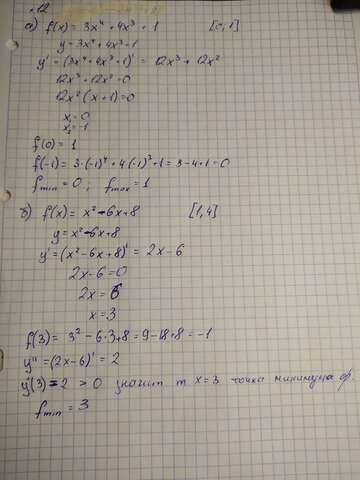 а) f(x) = 3x⁴ + 4x³ + 1 [0,1]
y = 3x⁴ + 4x³ + 1
y' = (3x⁴ + 4x³ + 1)' = 12x³ + 12x²
12x³ + 12x² = 0
12x² (x + 1) = 0
x₁ = 0
x₂ = -1
f(0) = 1
f(-1) = 3·(-1)⁴ + 4(-1)³ + 1 = 3 - 4 + 1 = 0
fmin = 0; fmax = 1
б) f(x) = x² - 6x + 8 [1,4]
y = x² - 6x + 8
y' = (x² - 6x + 8)' = 2x - 6
2x - 6 = 0
2x = 6
x = 3
f(3) = 3² - 6·3 + 8 = 9 - 18 + 8 = -1
y'' = (2x - 6)' = 2
y''(3) = 2 > 0 значит т x = 3 точка минимума ф.
fmin = 3